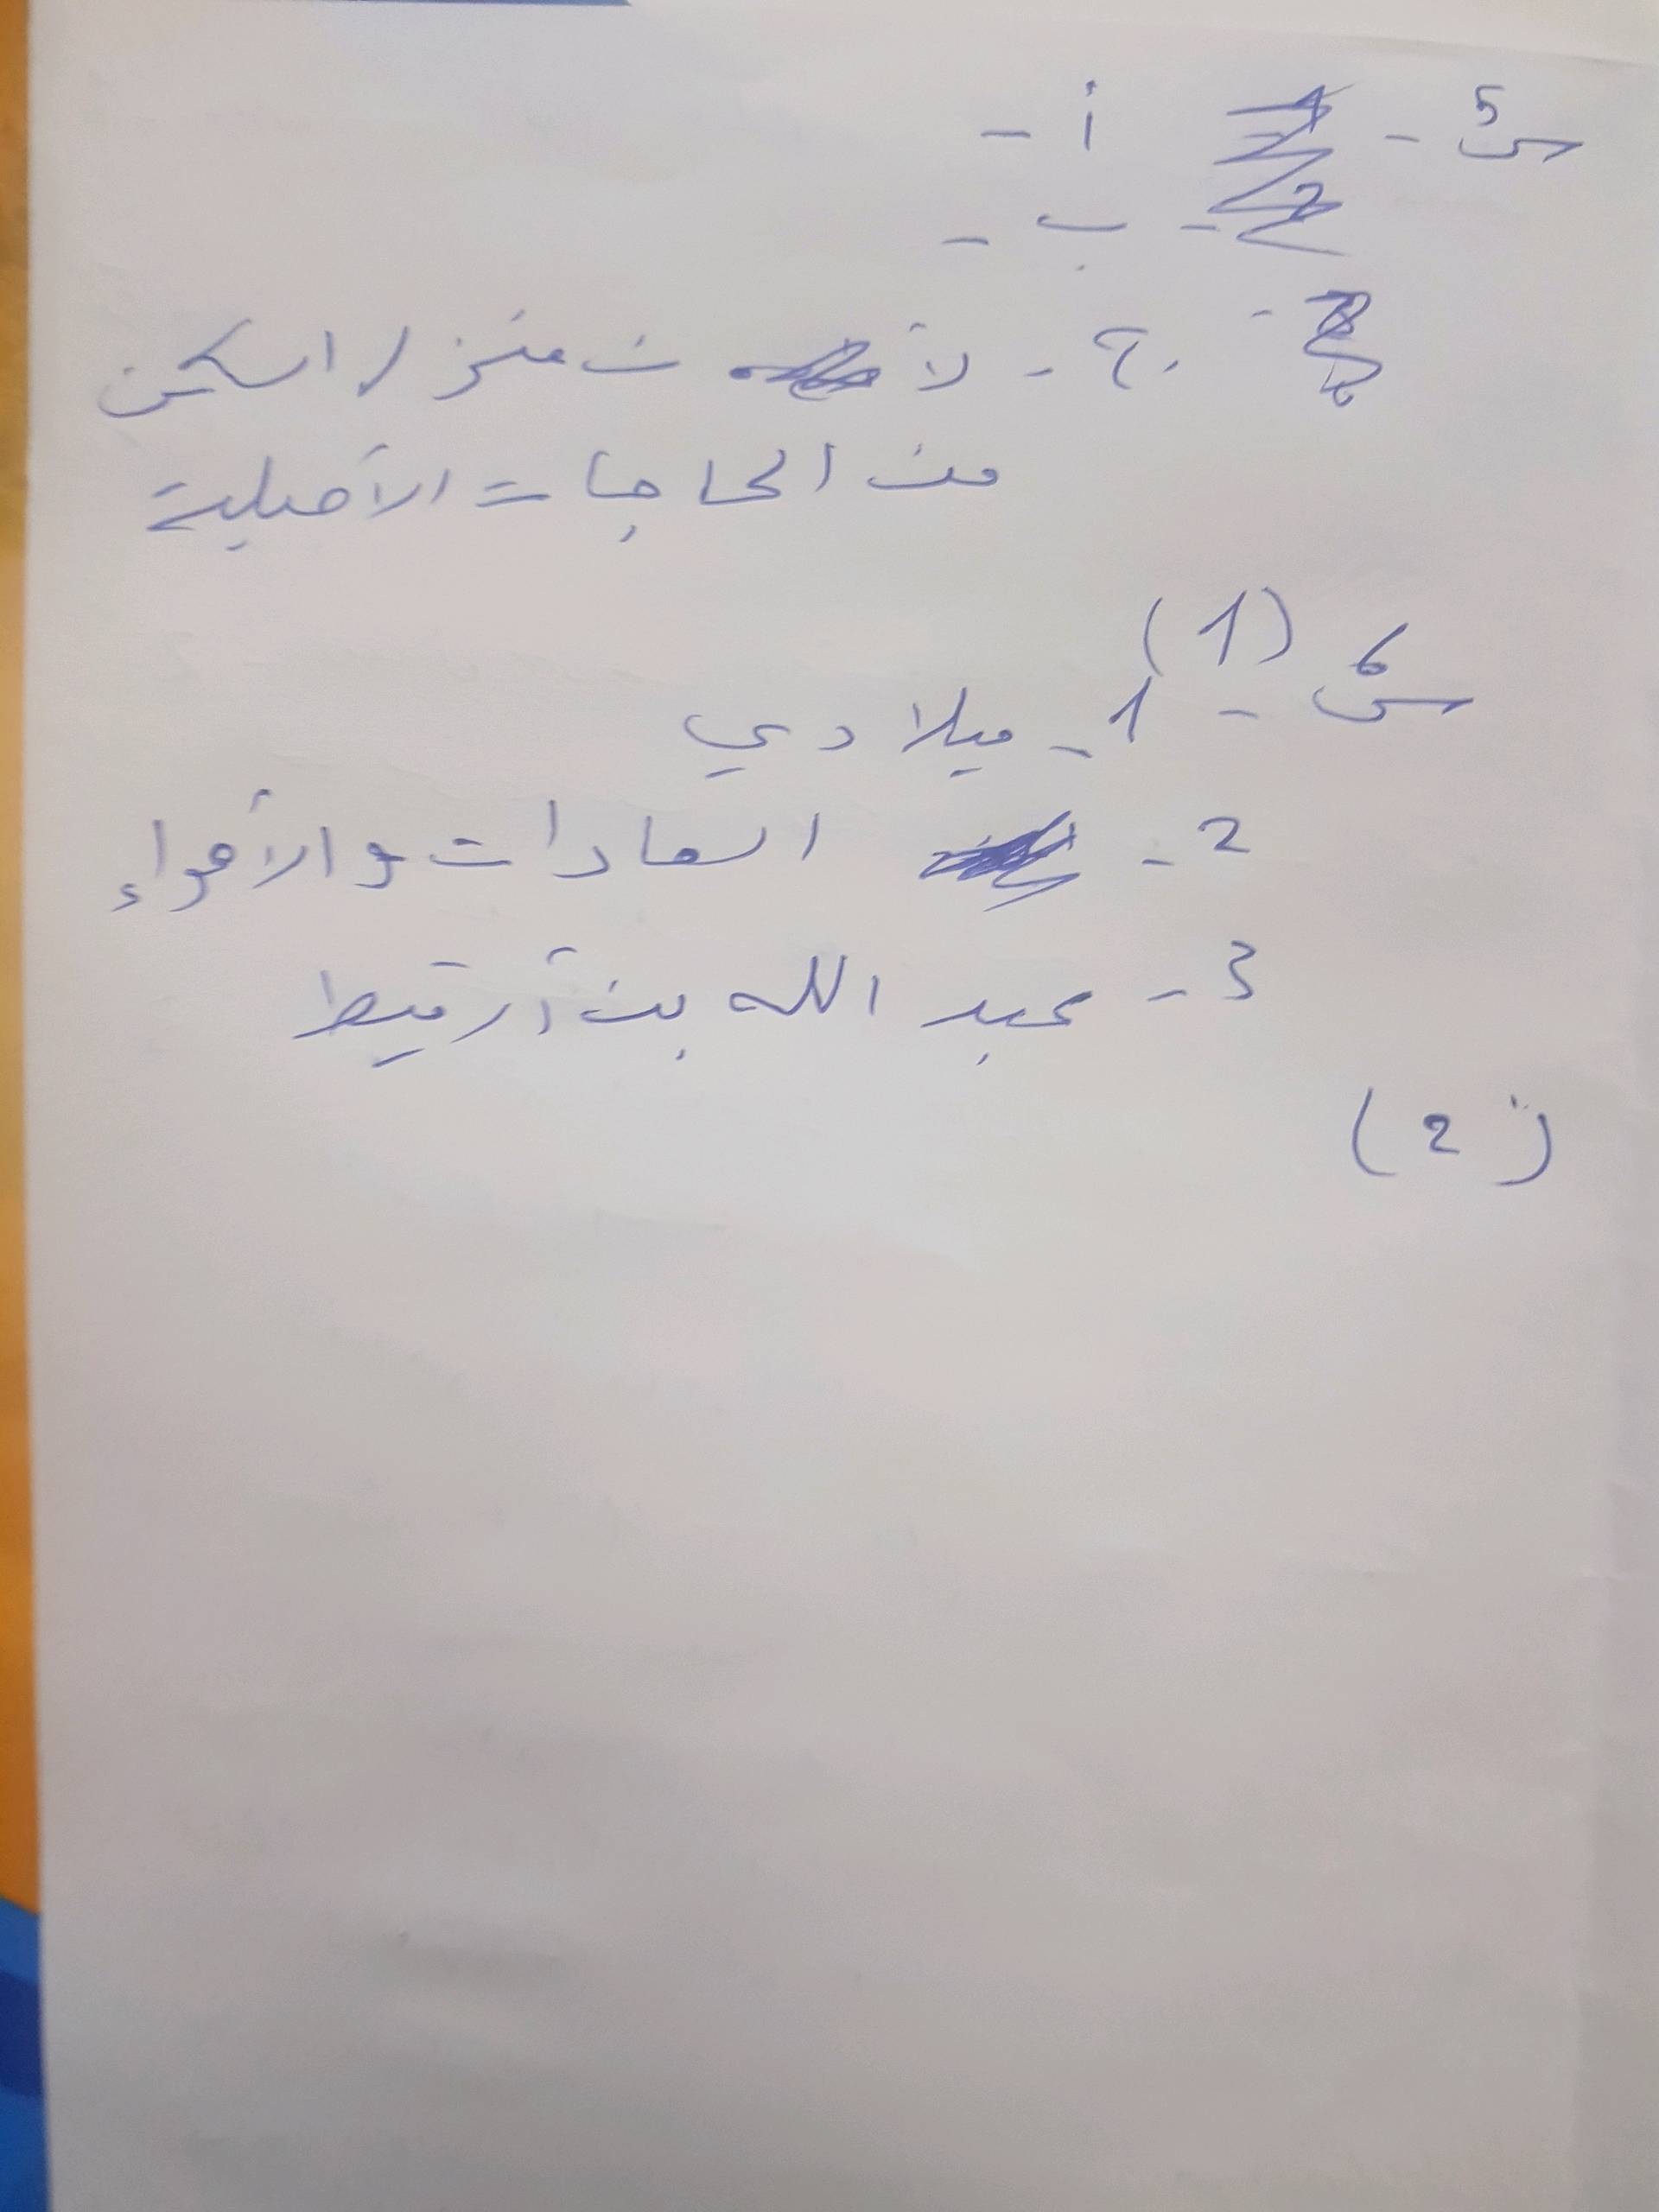 س5 - أ -
- ب -
- ج - لأ ن منزل السكن
من الحاجات الأصلية
س6 - (1)
1 - ميلادي
2 - العادات والأهواء
3 - عبد الله بن أرقيط
(2)